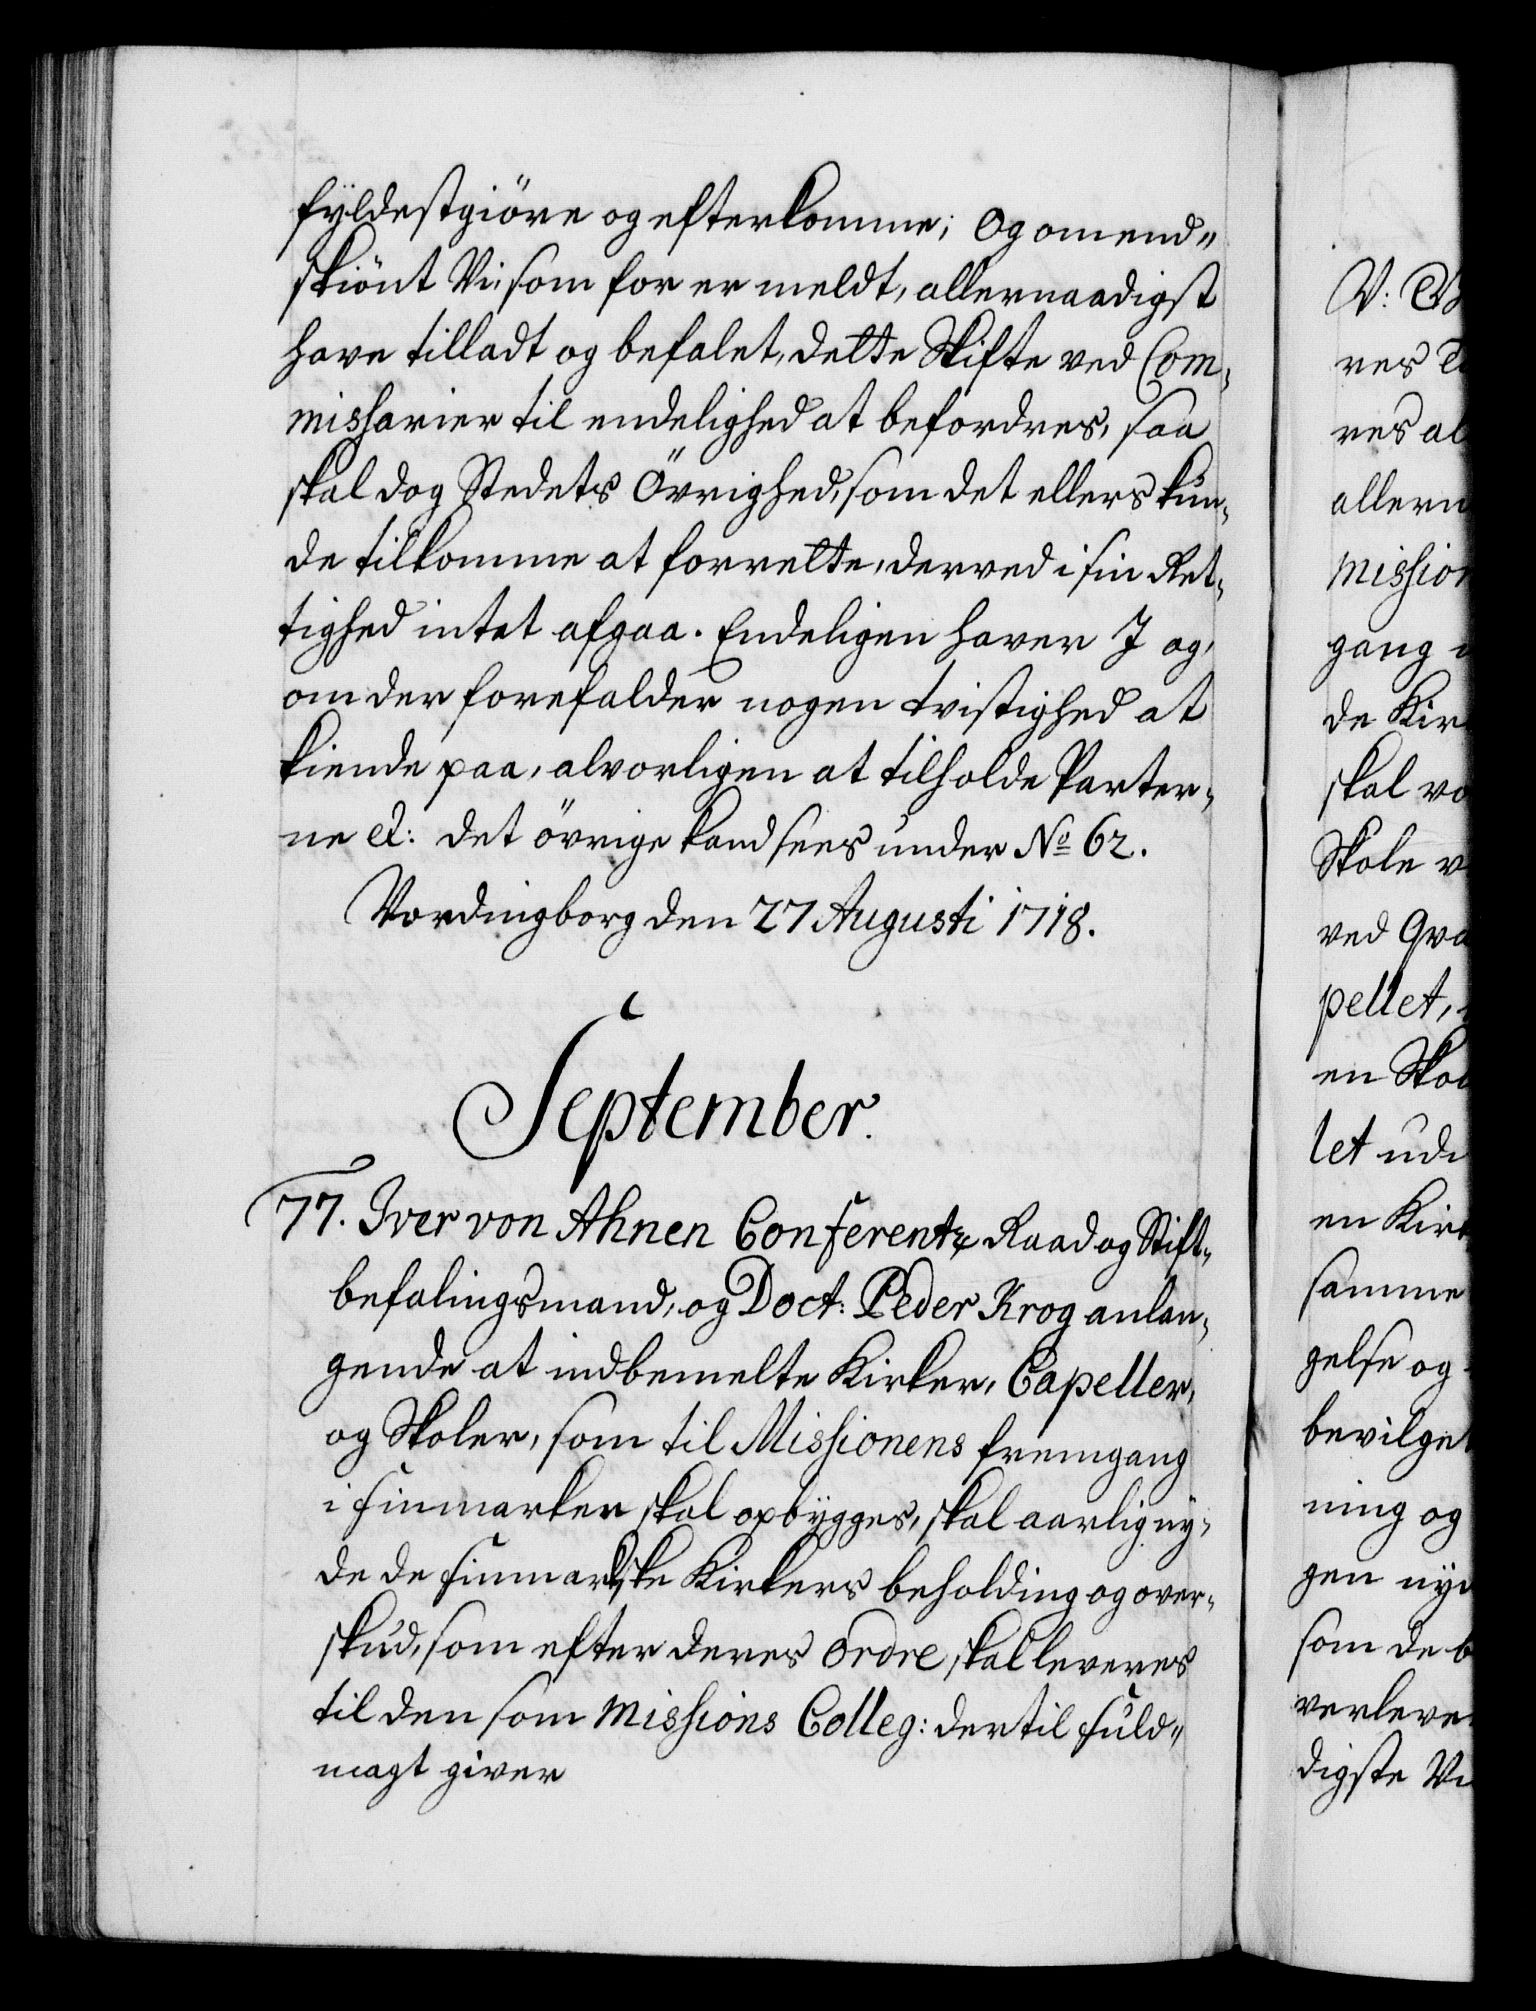 fyldestgiöre og efterkomme; Og omend„
skiönt Vi: som for er meldt, allernaadigst
have tilladt og befalet, dette Skifte ved Com„
missarier til endelighed at befordres, saa
skal dog Stedets Övrighed, som det ellers kun„
de tilkomme at forrette, derved i sin Ret„
tighed intet afgaa. Endeligen haver I og,
om der forefalder nogen tvistighed at
kiende paa, alvorligen at tilholde Parter„
ne &: det övrige kand sees under No 62.
Vordingborg den 27 Augusti 1718.
September.
77. Iver von Ahnen Conferentz Raad og Stift„
befalingsmand, og Doct: Peder Krog anlan„
gende at indbemelte Kirker, Capeller,
og Skoler, som til Missionens fremgang
i Finmarken skal opbygges, skal aarlig ny„
de de Finmarkske Kirkers beholding og over„
skud, som efter deres Ordre skal leveres
til den som Missions Colleg: dertil fuld„
magt giver
V:
res
res al
allern
mission
gang
de Kir
skal
Skole
ved
pellet,
en Skol
let
en Kir
samme
gelse og
bevilge
ning og
gen
som de
verleve
digste